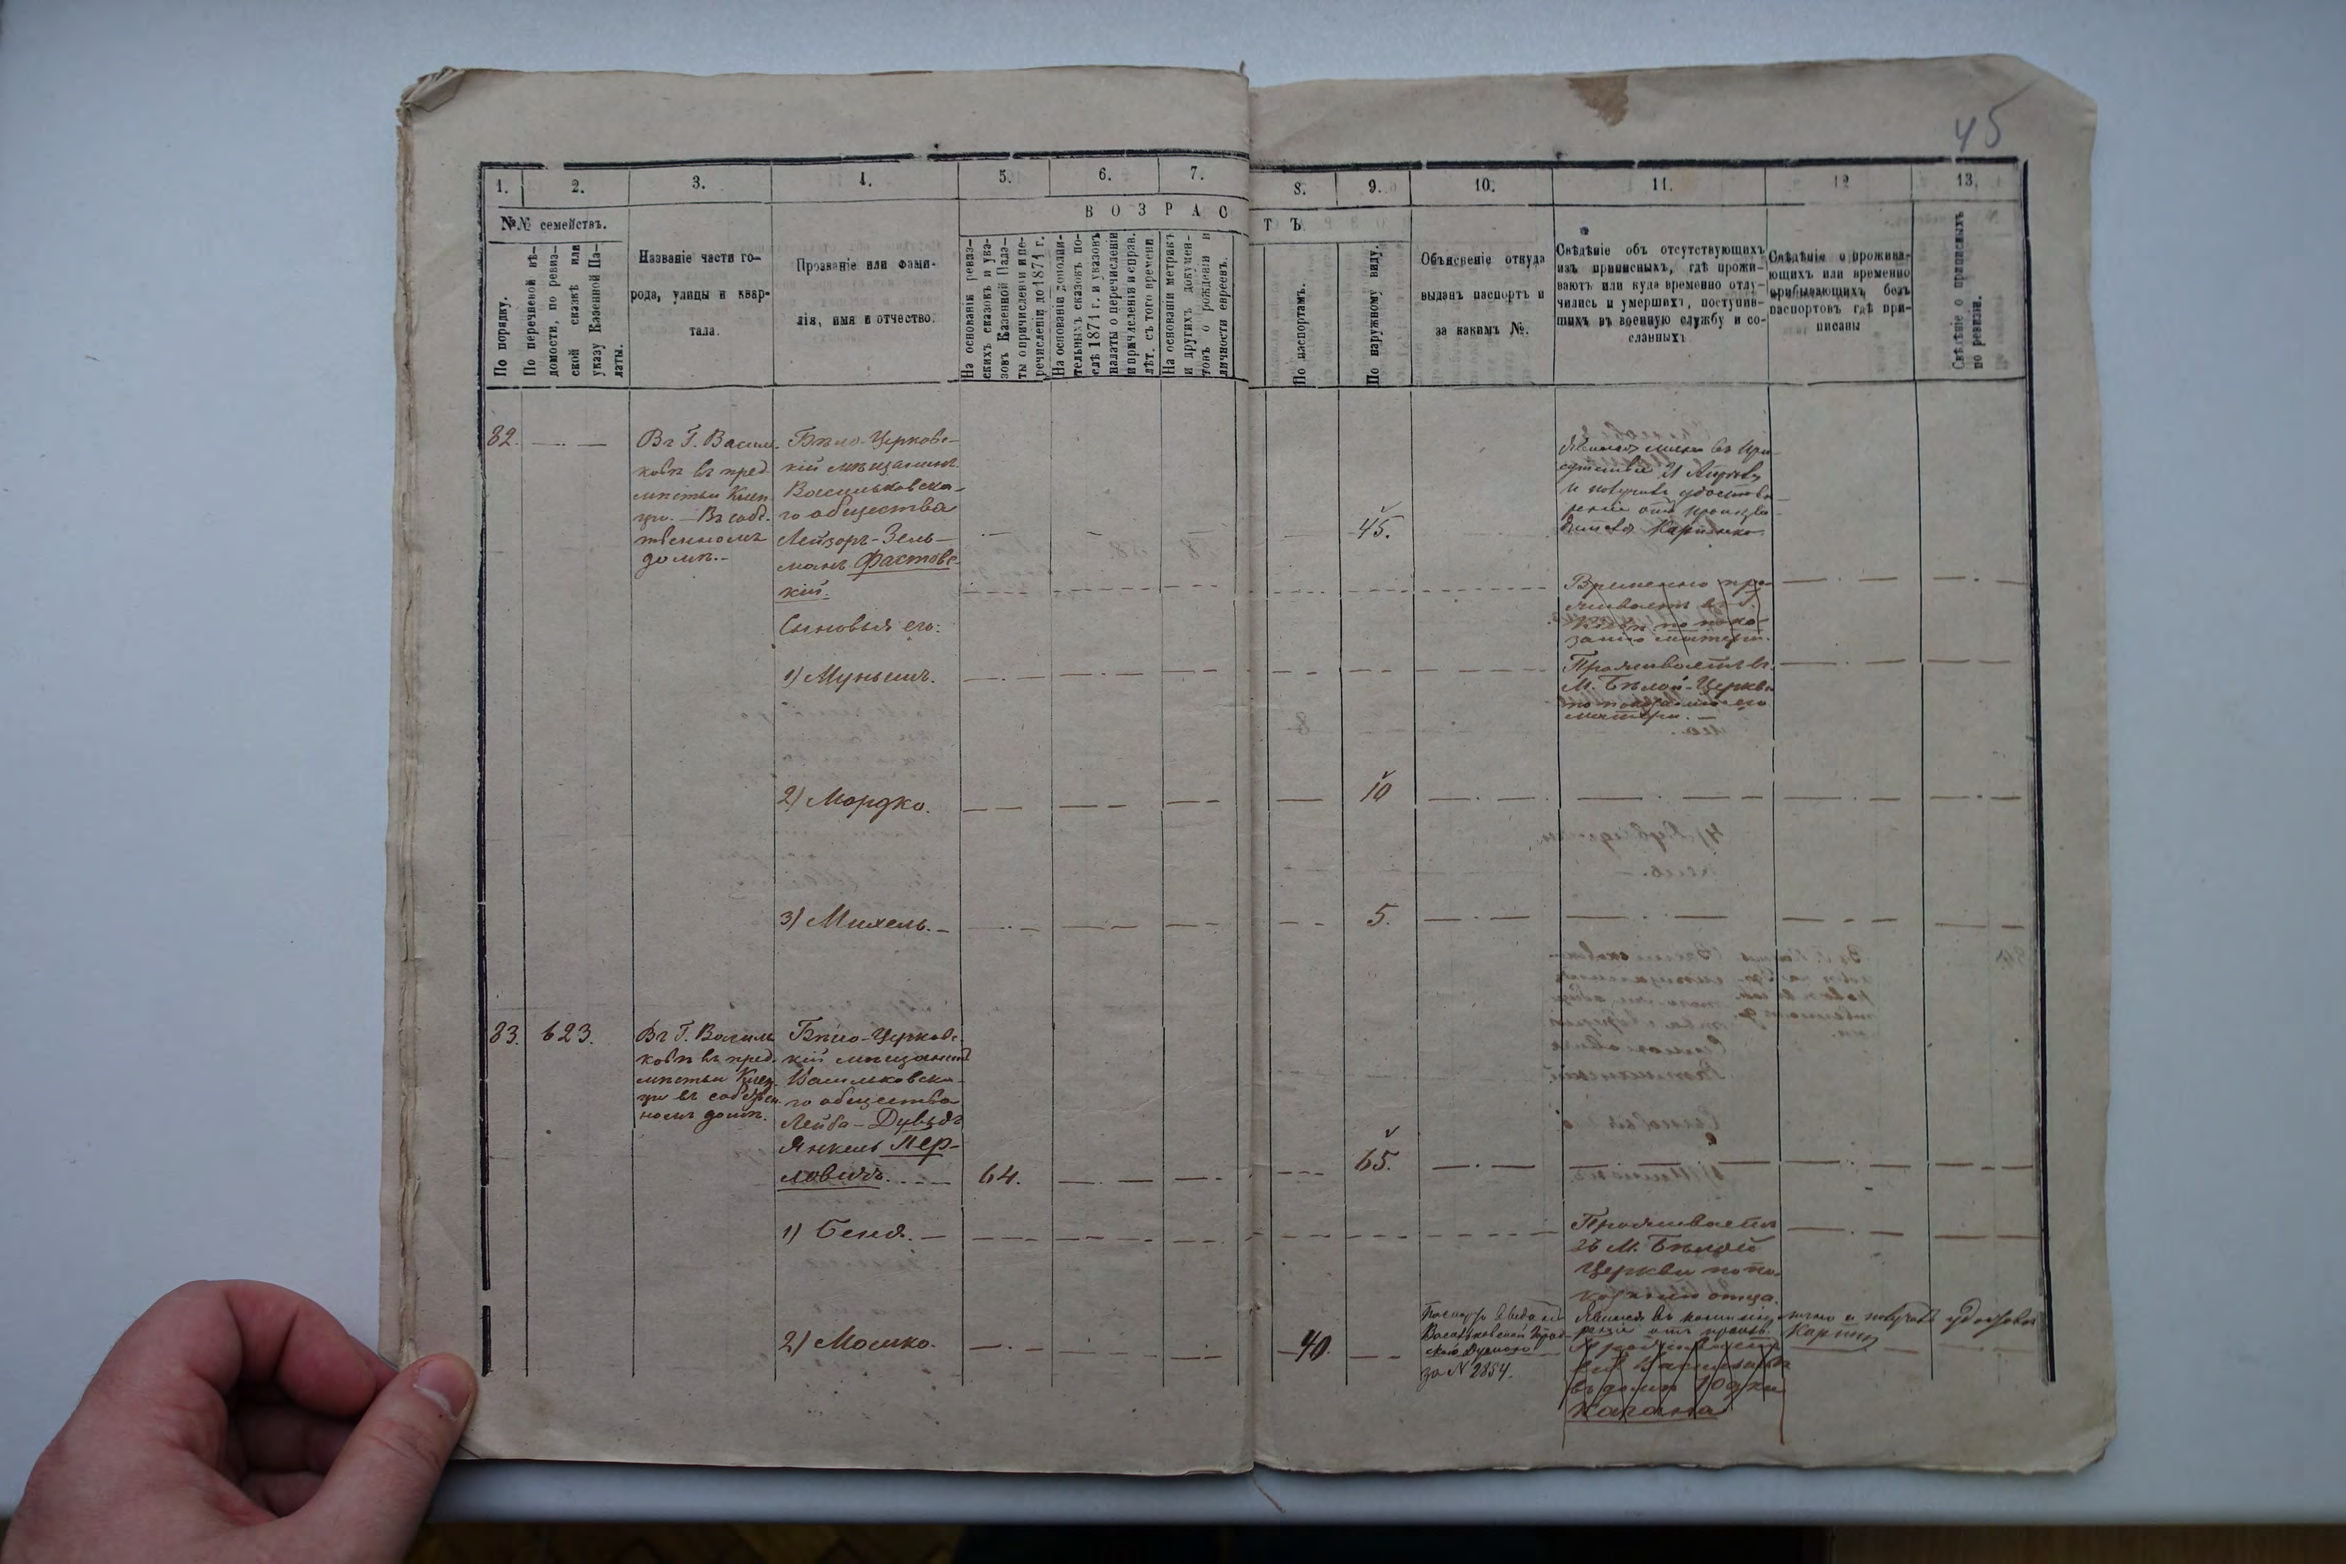 45
1.
2.
3.
4.
5.
6.
7.
8.
9.
10.
11.
12
13.
№№ семействъ.
В О З Р А С
Т Ъ
По порядку.
По перечневой вѣ-
домости, по ревиз-
ской сказкѣ или
указу Казенной Па-
латы.
Названіе части го-
рода, улицы и квар-
тала.
Прозваніе или фами-
лія, имя и отчество.
На основаніи ревиз-
скихъ сказокъ и ука-
зовъ Казенной Пала-
ты о причисленіи и пе-
речисленіи до 1874 г.
На основаніи дополни-
тельныхъ сказокъ по-
слѣ 1874 г. и указовъ
палаты о перечисленіи
и причисленіи и справ.
лѣт. съ того времени.
На основаніи метрикъ
и другихъ докумен-
товъ о рожденіи и
личности евреевъ.
По паспортамъ.
По наружному виду.
Объясненіе откуда
выданъ паспортъ и
за какимъ №.
Свѣдѣніе объ отсутствующихъ
изъ приписныхъ, гдѣ прожи-
ваютъ или куда временно отлу-
чились и умершихъ, поступив-
шихъ въ военную службу и со-
сланныхъ
Свѣдѣніе о прожива-
ющихъ или временно
прибывающихъ безъ
паспортовъ гдѣ при-
писаны
Свѣдѣніе о приписныхъ
по ревизіи.
82.
Въ Г. Василь-
ковѣ въ пред-
мѣстьи
Въ собс.
твенномъ
домѣ.
Бѣло-Церковс-
кій мѣщанинъ
Васильковска-
го общества
Лейзоръ-Зель-
манъ Фастовс-
кій.
45.
Сыновья его:
1) Муньишъ.
Проживаетъ въ
М. Бѣлой-Церкви
по показанію его
матери.
2) Мордко.
10
3) Михель.
5.
83.
623.
Въ Г. Василь
ковѣ въ пред-
мѣстьи
въ собствен
номъ домѣ.
Бѣло-Церковс-
кій мѣщанинъ
Васильковска-
го общества
Лейба-Дувыдъ
Янкель Пер-
ловичъ.
64.
65.
1) Беня.
Проживаетъ
въ М. Бѣлой
Церкви по по-
казанію отца.
2) Мошко.
40.
Васильковской Город-
ской Думою
за N 2854.